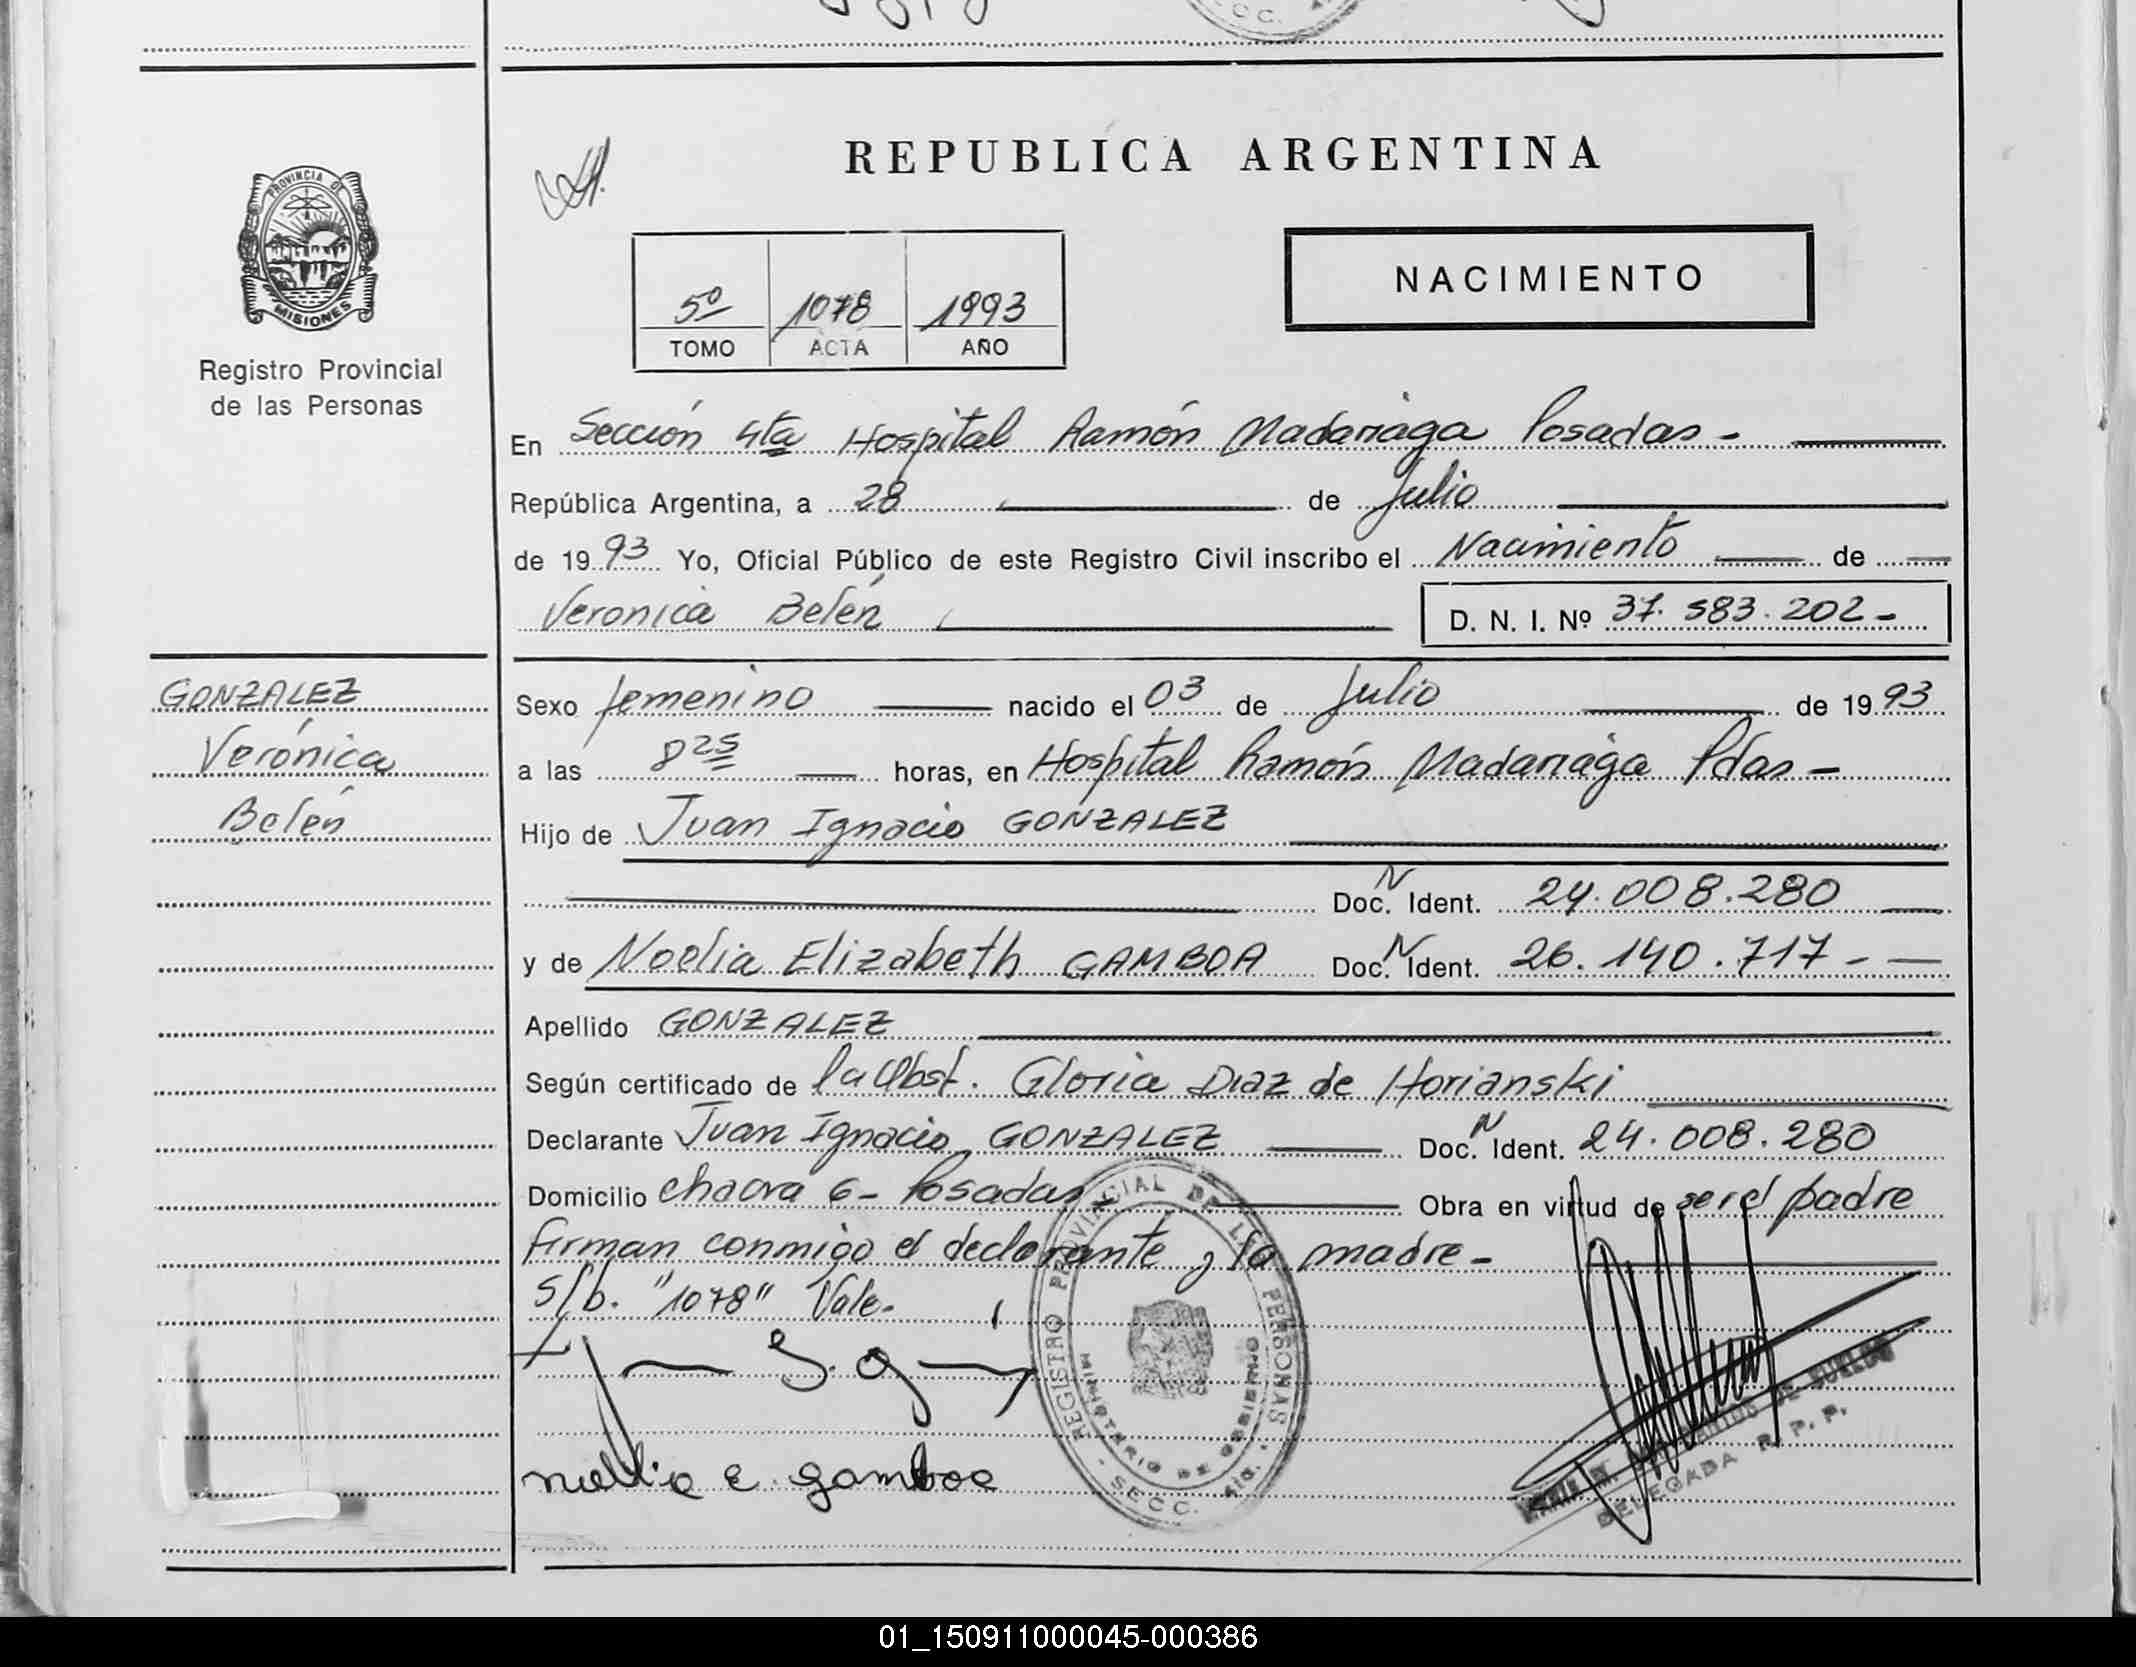 REPUBLICA ARGENTINA
NACIMIENTO
5º 1078 1993
TOMO ACTA AÑO
PROVINCIA DE
MISIONES
Registro Provincial
de las Personas
En Sección 4ta Hospital Ramón Madariaga Posadas -
República Argentina, a 28 de Julio
de 1993 Yo, Oficial Público de este Registro Civil inscribo el Nacimiento de
Veronica Belén D. N. I. Nº 37.583.202-
GONZALEZ
Verónica
Belén
Sexo femenino nacido el 03 de Julio de 1993
a las 8 25 horas, en Hospital Ramón Madariaga Pdas -
Hijo de Juan Ignacio GONZALEZ
Doc. N Ident. 24.008.280
y de Noelia Elizabeth GAMBOA Doc. N Ident. 26.140.717-
Apellido GONZALEZ
Según certificado de la Obst. Gloria Diaz de Horianski
Declarante Juan Ignacio GONZALEZ Doc. N Ident. 24.008.280
Domicilio chacra 6- Posadas- Obra en virtud de ser el padre
firman conmigo el declarante y la madre-
S/b. "1078" Vale.
noelia e. gamboa
REGISTRO PROVINCIAL DE LAS PERSONAS
MINISTERIO DE GOBIERNO
SECC. 4ta.
DELEGADA R. P. P.
01_150911000045-000386